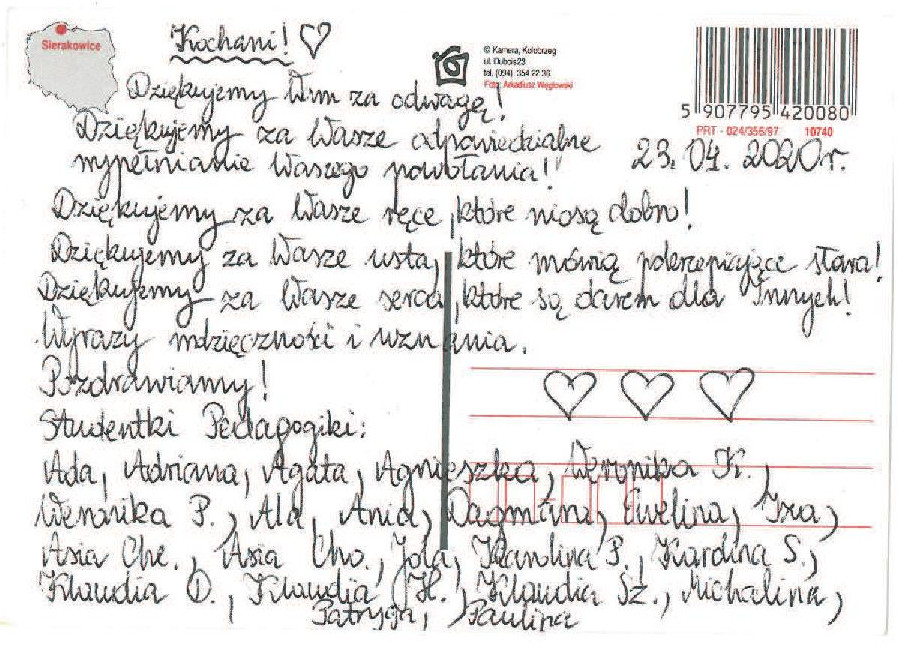 Sierakowice
Kochani! ♡
© Kamera, Kołobrzeg
ul. Dubois 23
tel. (094) 354 22 36
Foto: Arkadiusz Węglowski
5 907795 420080
PRT - 024/356/97 10740
23.04.2020r.
Dziękujemy Wam za odwagę!
Dziękujemy za Wasze odpowiedzialne
wypełnianie Waszego powołania!
Dziękujemy za Wasze ręce, które niosą dobro!
Dziękujemy za Wasze usta, które mówią pokrzepiające słowa!
Dziękujemy za Wasze serca, które są darem dla Innych!
Wyrazy wdzięczności i uznania.
Pozdrawiamy!
Studentki Pedagogiki:
♡ ♡ ♡
Ada, Adriana, Agata, Agnieszka, Weronika K.,
Weronika P., Ala, Ania, Dagmara, Ewelina, Iza,
Asia Che., Asia Cho., Jola, Karolina P., Karolina S.,
Klaudia O., Klaudia H., Klaudia Sz., Michalina,
Patrycja, Paulina